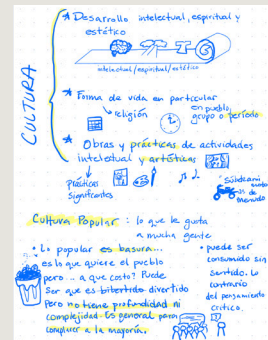 CULTURA
* Desarrollo intelectual, espiritual y
estético
intelectual/espiritual/estético
* Forma de vida en particular
religión
en pueblo,
grupo o período
* Obras y prácticas de actividades
intelectual y artísticas
prácticas
significantes
Cultura Popular : lo que le gusta
a mucha gente
• Lo popular es basura...
es lo que quiere el pueblo
pero... a que costo? Puede
Ser que es divertido
Pero no tiene profundidad ni
complejidad. Es general para
complacer a la mayoría.
• puede ser
consumido sin
sentido. Lo
contrario
del pensamiento
crítico.